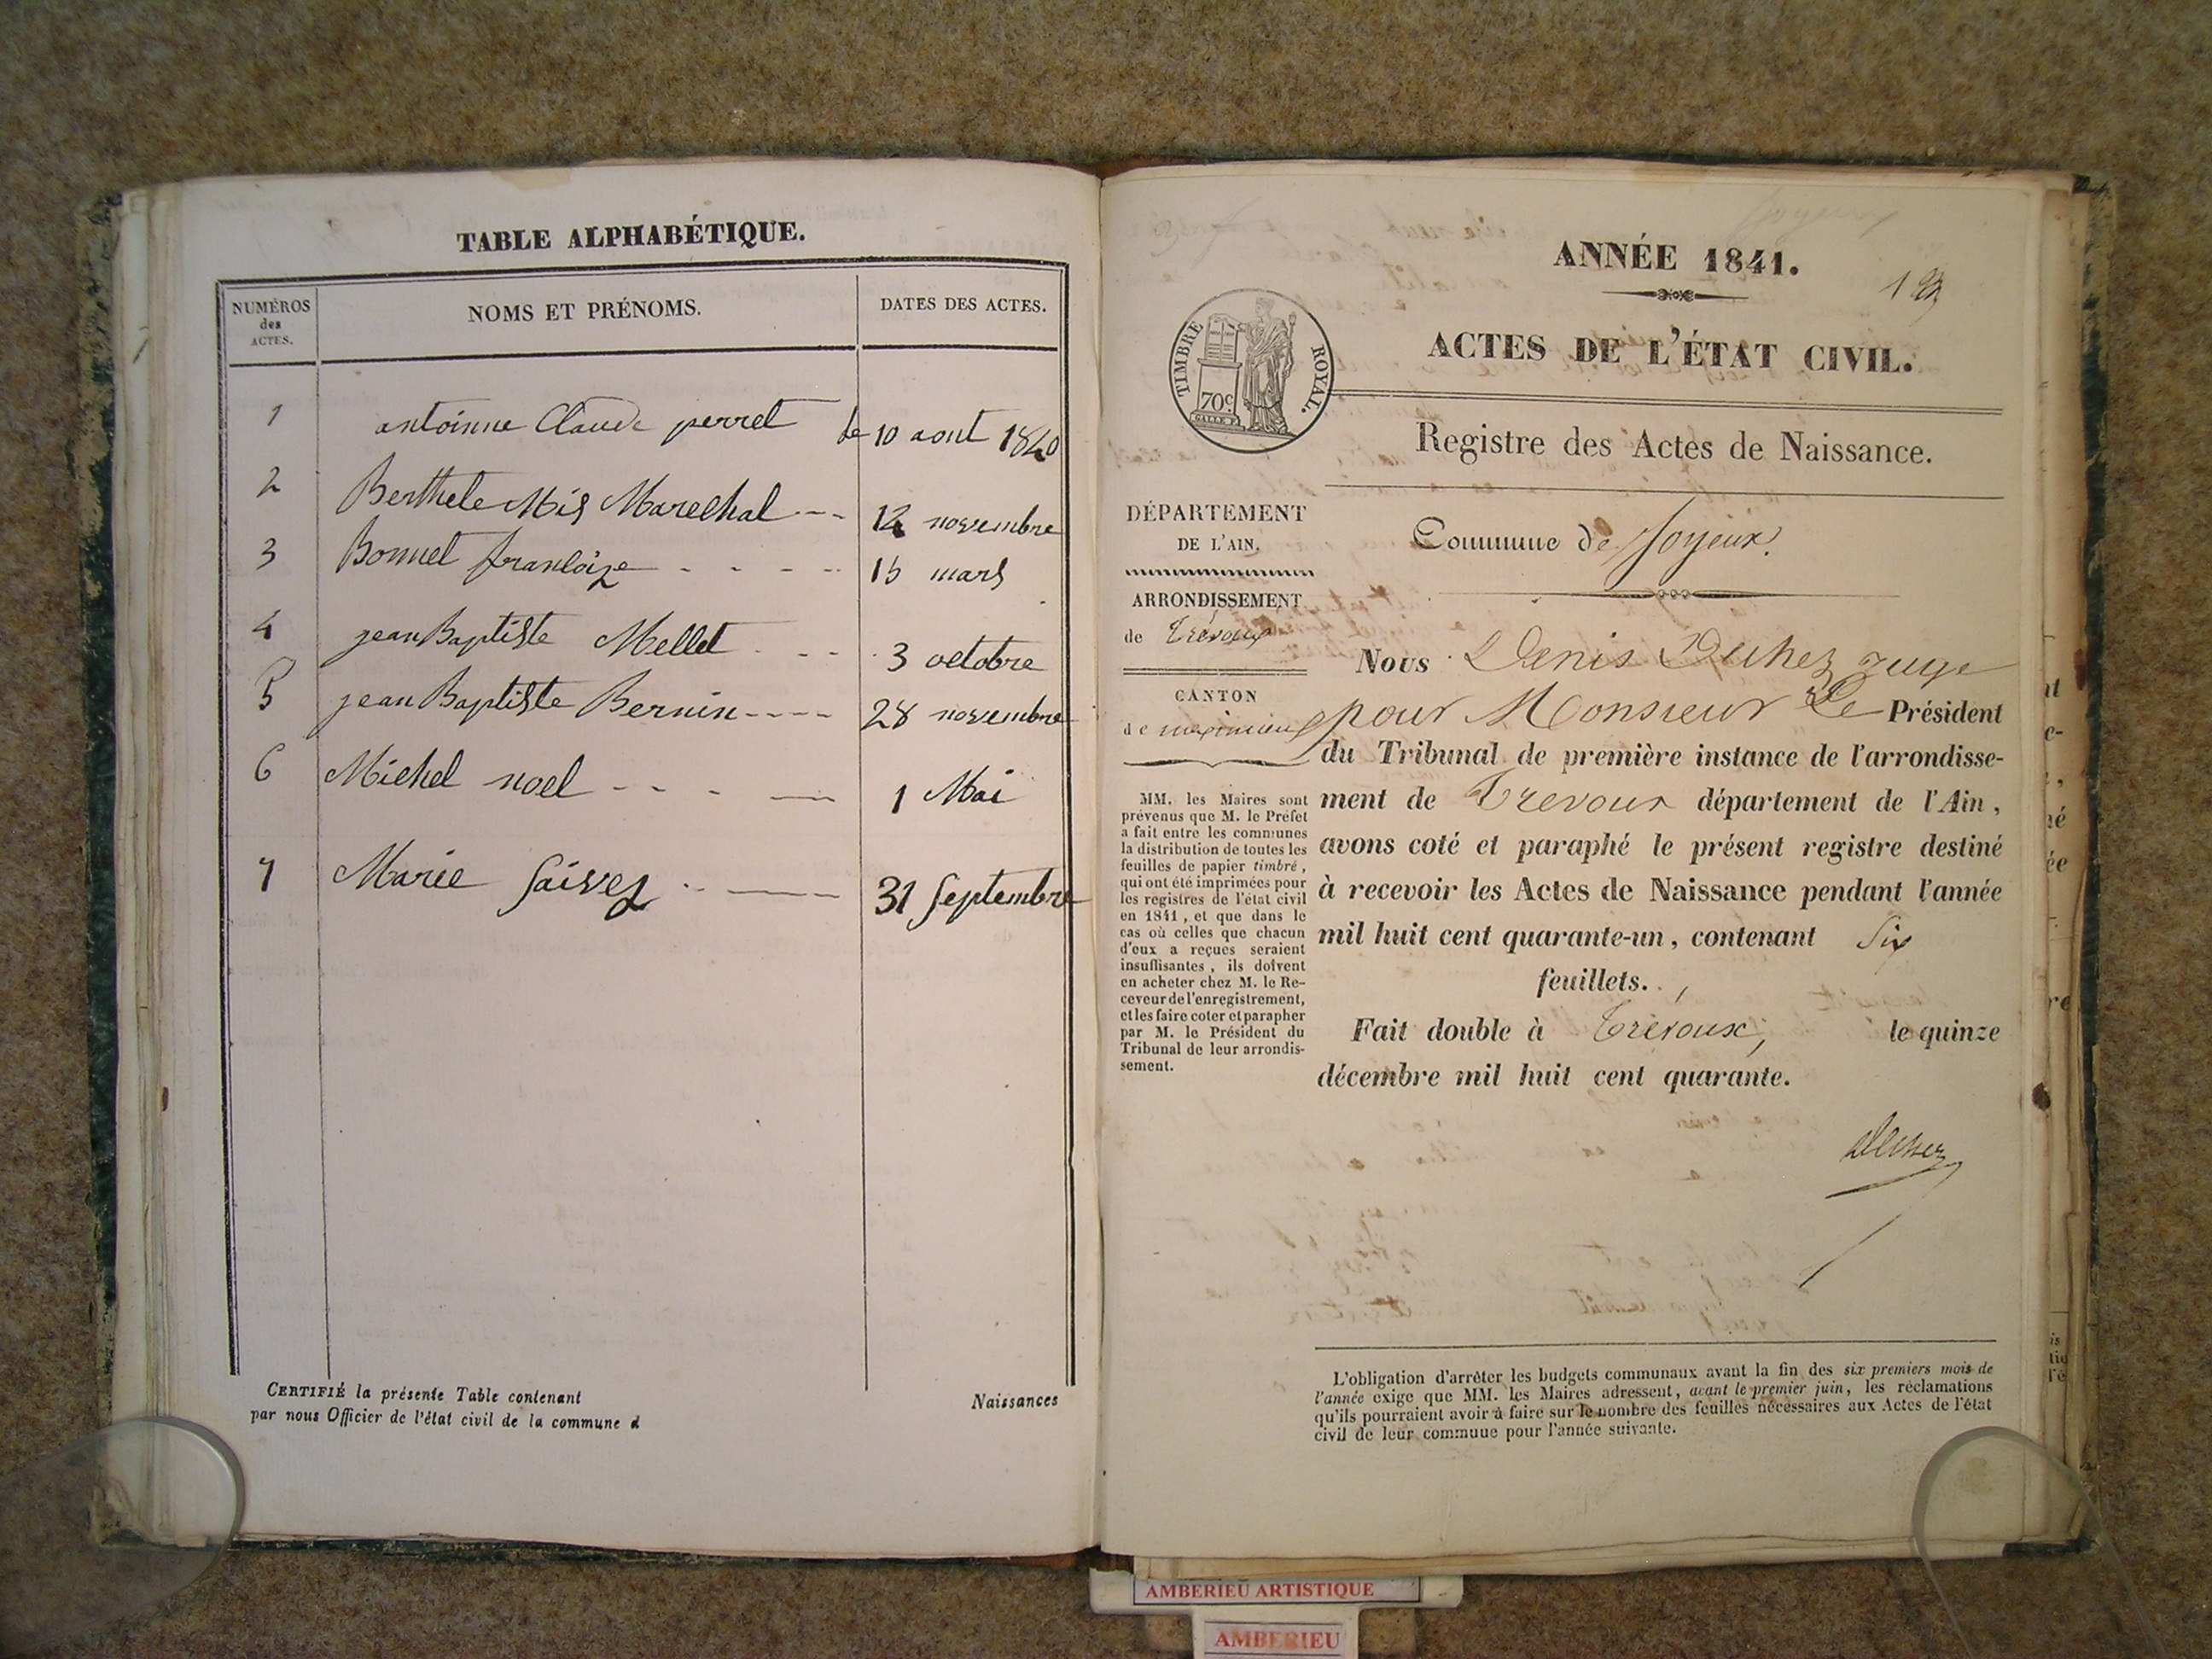 TABLE ALPHABÉTIQUE.
NUMÉROS des ACTES.
NOMS ET PRÉNOMS.
DATES DES ACTES.
1 antoinne Claude perret le 10 aout 1840
2 Berthele Mis Marechal 12 novembre
3 Bonnet francoize 15 mars
4 jean Baptiste Mellet 3 octobre
5 jean Baptiste Bernin 28 novembre
6 Michel noel 1 Mai
7 Marie Saivez 31 Septembre
CERTIFIÉ la présente Table contenant Naissances
par nous Officier de l'état civil de la commune d
ANNÉE 1841.
ACTES DE L'ÉTAT CIVIL.
TIMBRE ROYAL.
70c
Registre des Actes de Naissance.
DÉPARTEMENT
DE L'AIN.
ARRONDISSEMENT
de Trévoux
CANTON
de meximieux
MM. les Maires sont
prévenus que M. le Préfet
a fait entre les communes
la distribution de toutes les
feuilles de papier timbré,
qui ont été imprimées pour
les registres de l'état civil
en 1841, et que dans le
cas où celles que chacun
d'eux a reçues seraient
insuffisantes, ils doivent
en acheter chez M. le Re-
ceveur de l'enregistrement,
et les faire coter et parapher
par M. le Président du
Tribunal de leur arrondis-
sement.
Commune de Joyeux.
Nous Denis Duhez juge
pour Monsieur Le Président
du Tribunal de première instance de l'arrondisse-
ment de Trevoux département de l'Ain,
avons coté et paraphé le présent registre destiné
à recevoir les Actes de Naissance pendant l'année
mil huit cent quarante-un, contenant Six
feuillets.
Fait double à Trévoux, le quinze
décembre mil huit cent quarante.
Duhez
L'obligation d'arrêter les budgets communaux avant la fin des six premiers mois de
l'année exige que MM. les Maires adressent, avant le premier juin, les réclamations
qu'ils pourraient avoir à faire sur le nombre des feuilles nécessaires aux Actes de l'état
civil de leur commune pour l'année suivante.
AMBERIEU ARTISTIQUE
AMBERIEU